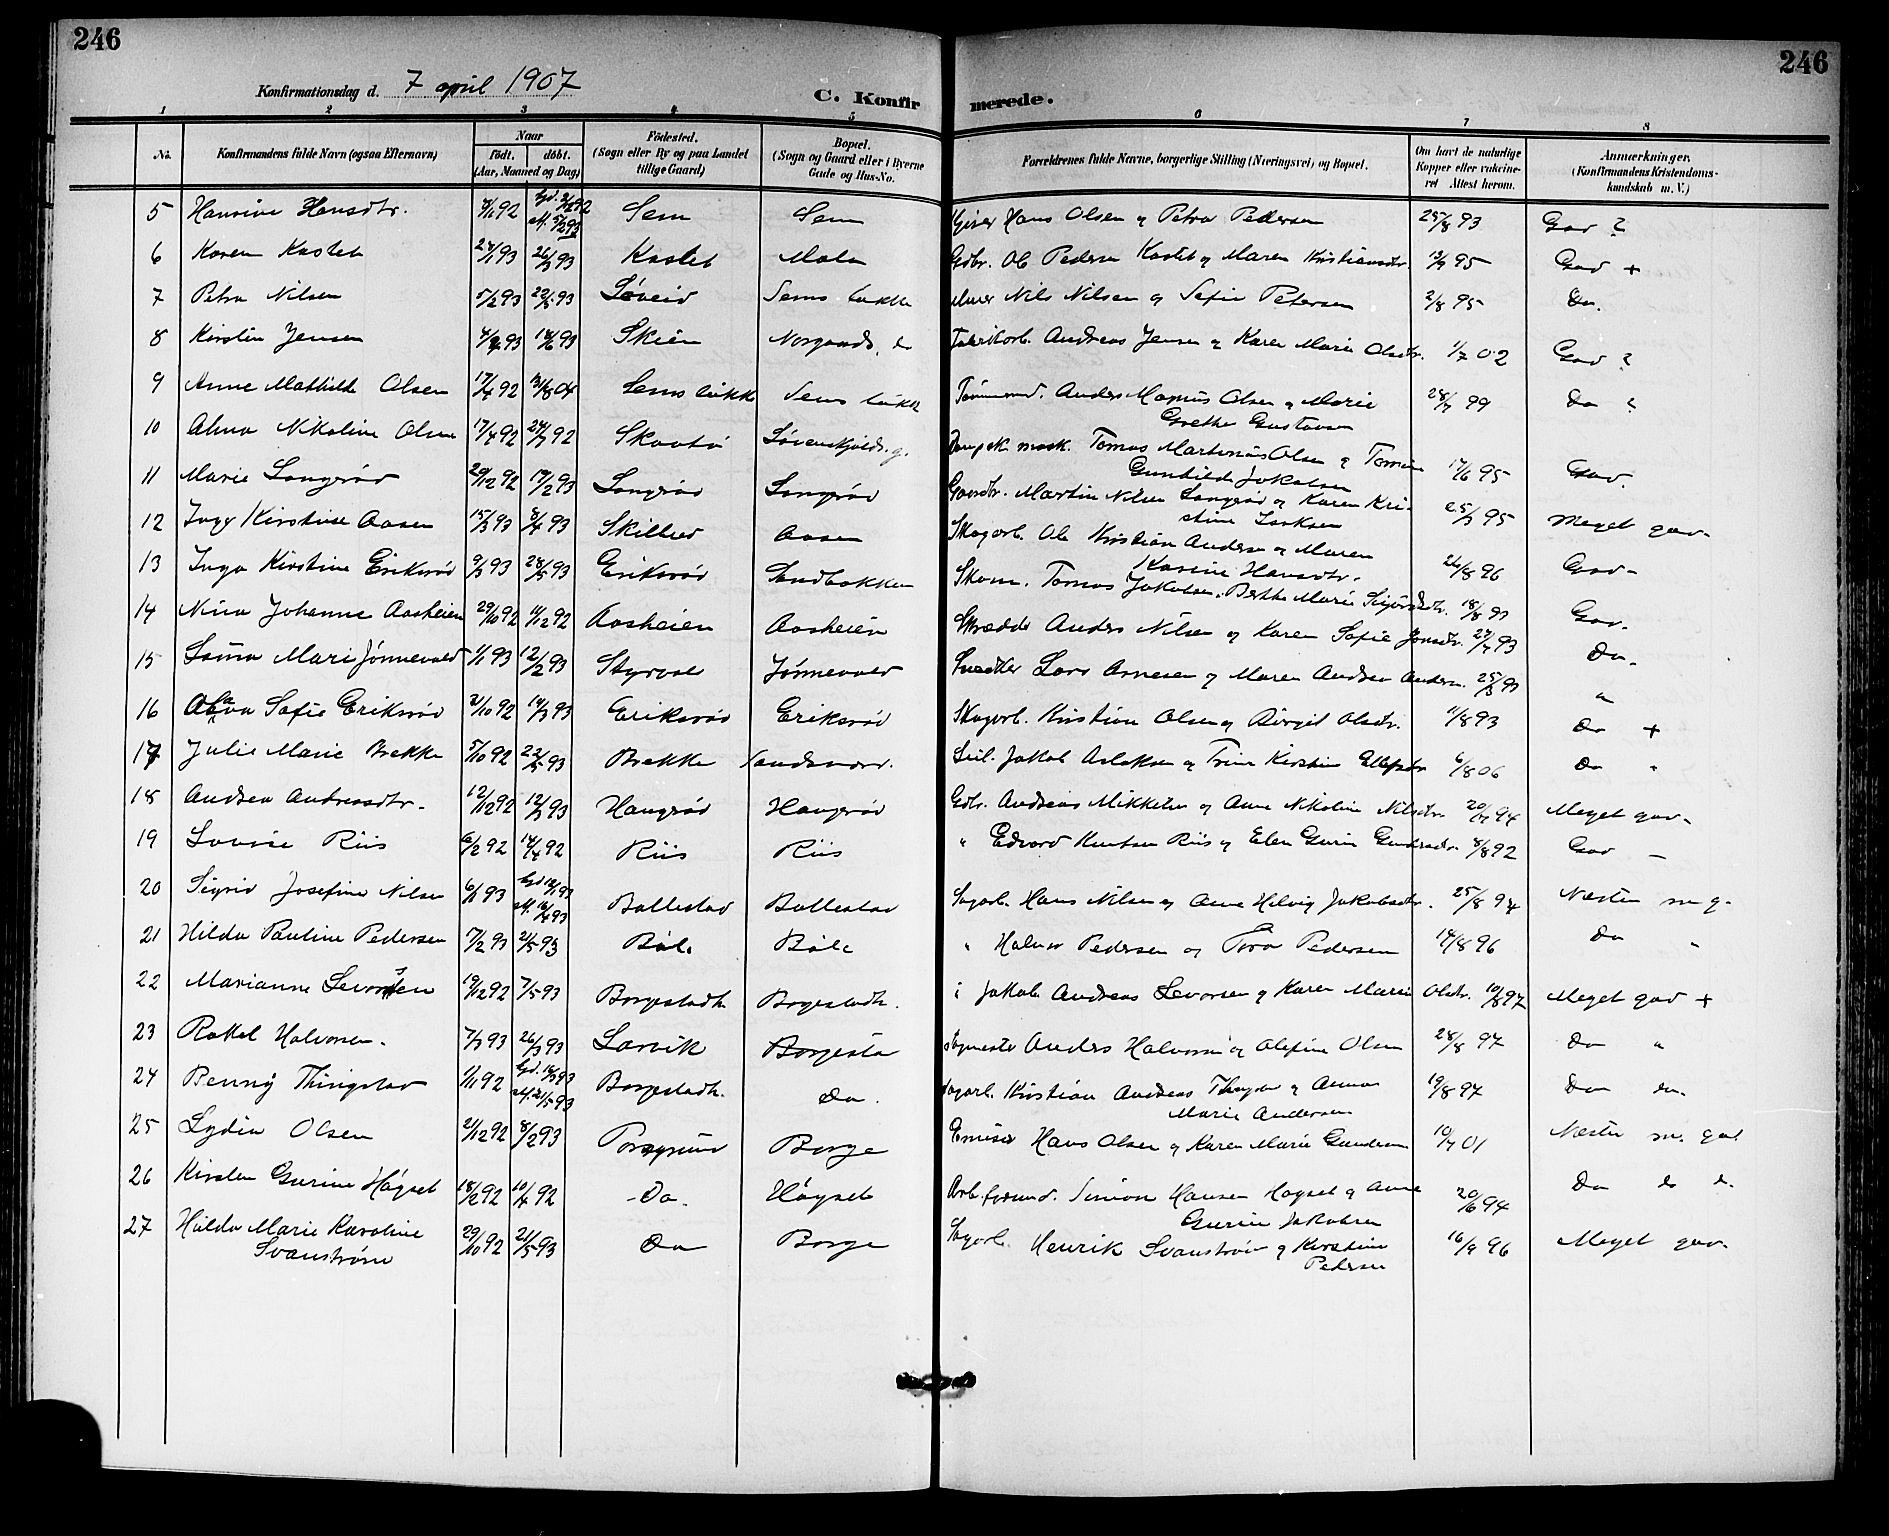 246
246
Konfirmationsdag d. 7 april 1907
C. Konfir
merede.
1 2 3 4 5 6 7 8
No. Konfirmandens fulde Navn (ogsaa Efternavn)
Naar
født. døbt.
(Aar, Maaned og Dag)
Fødested.
(Sogn eller By og paa Landet
tillige Gaard)
Bopæl.
(Sogn og Gaard eller i Byerne
Gade og Hus-No.
Forældrenes fulde Navne, borgerlige Stilling (Næringsvei) og Bopæl.
Om havt de naturlige
Kopper eller vakcine-
ret Attest herom.
Anmærkninger.
(Konfirmandens Kristendoms-
kundskab m. V.)
5 Hansine Hansdtr. Sem Sem Hans Olsen og Petra Pedersen 25/8 93 God ?
6 Karen Kastet 26/3 93 Kastet Gdbr. Ole Pedersen Kastet og Maren Kristiansdtr. God +
7 Petra Nilsen 5/2 93 Sems lukke Murer Nils Nilsen og Sofie Petersen 2/8 95 Do.
8 Kirstin Jensen 18/6 93 Skien Andreas Jensen og Karen Marie Olsdtr. 1/7 02 God ?
9 Anne Mathilde Olsen 17/4 92 31/8 04 Sems lukke Sems lukke Tømmermd. Anders Magnus Olsen og Marie
Grethe Gustavsen 28/7 99 Do ?
10 Alma Nikoline Olsen 17/4 92 24/7 92 Skaatø Løvenskjolds.g. Tomas Martinius Olsen og
Gunhild Jakobsen 17/6 95 God.
11 Marie Langrød 29/12 92 19/2 93 Langrød Langrød Gaardbr. Martin Nilsen Langrød og Karen Kri-
stine Isaksen 25/7 95 Meget god.
12 Inga Kirstine Aasen 15/3 93 8/4 93 Aasen Skogarb. Ole Kristian Andersen og Maren
Karine Hansdtr. 26/8 96 God -
13 Inga Kirstine Eriksrød 9/3 93 28/5 93 Eriksrød Sandbakken Skom. Tomas Jakobsen. Berthe Marie Sigurdsdtr. God.
14 Nina Johanne Aasheien 29/10 92 11/12 92 Aasheien Aasheien Skrædder Anders Nilsen og Karen Sofie Jonsdtr. 24/7 93 Do.
15 Mari Jønnevald 1/1 93 12/2 93 Styrvold Jønnevald Snedker Lars Arnesen og Maren Andrea Andersen. "
16 Sofie Eriksrød 2/10 92 19/3 93 Eriksrød Eriksrød Skogarb. Kristian Olsen og Birgit Olsdtr. 11/8 93 Do +
17 Julie Marie Brekke 5/10 92 Brekke Jakob Aslaksen og Trine Kirstine Ellefsdtr. 6/8 06 Do "
18 Andrea Andreasdtr. 12/12 92 12/3 93 Haugrød Haugrød Gdbr. Andreas Mikkelsen og Anne Nikoline Nilsdtr. 20/7 94 Meget god.
19 Lovise Riis 6/2 92 18/4 92 Riis Riis " Edvard Knutsen Riis og Elen Gurine Gundersdtr. 8/8 92 God -
20 Sigrid Josefine Nilsen 6/1 93 Bollestad Bollestad Sagarb. Hans Nilsen og Anne Helvig Jakobsdtr. 25/8 94 Næsten m g.
21 Hilda Pauline Pedersen 7/2 93 21/5 93 Bøle Bøle " Halvor Pedersen og Tora Pedersen 14/8 96 Do "
22 Marianne Levorsen 19/12 92 7/5 93 Borgestadh. Borgestadh. Jakob Andreas Levorsen og Karen Marie Olsdtr. 10/8 97 Meget god +
23 Rakel Halvorsen. 7/3 93 26/3 93 Larvik Borgestad Anders Halvorsen og Olefine Olsen 28/8 97 Do "
24 Benny Thingstad 1/11 92 21/5 93 Borgestadh. Do. Sagarb. Kristian Andreas Thingstad og Anna
Marie Andersen 19/8 97 Do do.
25 Lydia Olsen 2/12 92 8/2 93 Porsgrund Borge Hans Olsen og Karen Marie Gundersen 10/7 01 Næsten m. god
26 Kirsten Gurine Høgset 18/2 92 10/4 92 Do. Høgset Arb.formd. Simon Hansen Høgset og Anne
Gurine Jakobsen 20/6 94 Do do d.
27 Hilda Marie Karoline
Svanstrøm 29/10 92 21/5 93 Do Borge Sagarb. Henrik Svanstrøm og Kirstine
Pedersen 16/9 96 Meget god.